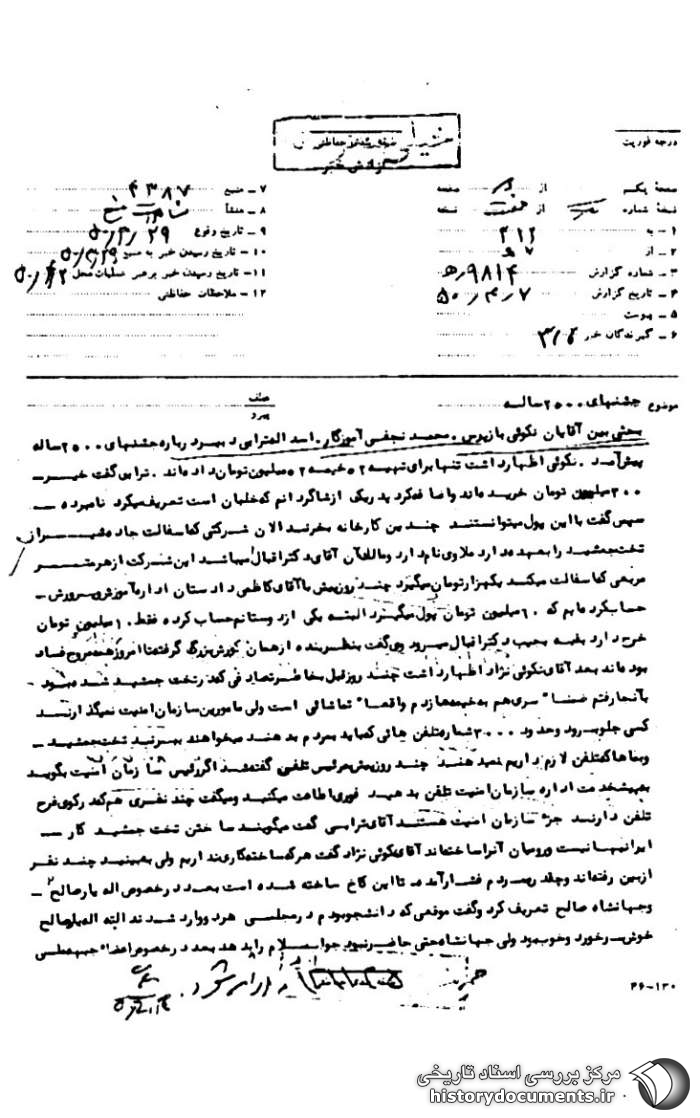 خیلی محرمانه
طبقه بندی حفاظتی
گزارش خبر
درجه فوریت
صفحه یکم از دو صفحه
نسخه شماره از هفت نسخه
۱ - به ۳۱۲
۲ - از ۷ ه‍
۳ - شماره گزارش ۹۸۱۴/ه‍
۴ - تاریخ گزارش ۵۰/۴/۷
۵ - پیوست
۶ - گیرندگان خبر
۷ - منبع ۴۳۸۷
۸ - منشأ
۹ - تاریخ وقوع ۵۰/۳/۲۹
۱۰ - تاریخ رسیدن خبر به منبع ۵۰/۳/۲۹
۱۱ - تاریخ رسیدن خبر برهبر عملیات محل
۱۲ - ملاحظات حفاظتی
موضوع جشنهای ۲۵۰۰ ساله
عطف
پیرو
بحثی بین آقایان نکوئی بازپرس . محمد نجفی آموزگار . اسداله ترابی دبیر درباره جشنهای ۲۵۰۰ ساله
پیش آمد . نکوئی اظهارداشت تنها برای تهیه ۵۲ خیمه ۵۲ میلیون تومان داده اند . ترابی گفت خیر
۳۰۰ میلیون تومان خریده اند واضافه کرد پدر یکی از شاگردانم که خلبان است تعریف میکرد نامبرده
سپس گفت با این پول میتوانستند چندین کارخانه بخرند الان شرکتی که اسفالت جاده شیراز
تخت جمشید را بعهده دارد ملاوی نام دارد ومالک آن آقای دکتر اقبال میباشد این شرکت از هر متر
مربعی که اسفالت میکند یکهزار تومان میگیرد چند روز پیش با آقای کاظمی دادستان اداره آموزش وپرورش
حساب کرده ایم که ۶۰ میلیون تومان پول میگیرد البته یکی از دوستانم حساب کرده فقط ۱۰ میلیون تومان
خرج دارد بقیه بجیب دکتر اقبال میرود وی گفت بنظر بنده از همان کورش بزرگ گرفته تا امروز همه مروج فساد
بوده اند بعد آقای نکوئی نژاد اظهارداشت چند روز قبل بخاطر تصادفی که در تخت جمشید شده بود
بآنجا رفتم ضمناً سری هم به خیمه ها زدم واقعاً تماشائی است ولی مامورین سازمان امنیت نمیگذارند
کسی جلو برود وحدود ۳۰۰۰ شماره تلفن هائی که باید بمردم بدهند میخواهند ببرند تخت جمشید
وبماها که تلفن لازم داریم نمیدهند چند روز پیش برئیس تلفن گفته شد اگر رئیس سازمان امنیت بگوید
به پیشخدمت اداره سازمان امنیت تلفن بدهید فوری اطاعت میکنید ومیگفت چند نفری هم که در کوی فرح
تلفن دارند جزء سازمان امنیت هستند آقای ترابی گفت میگویند ساختن تخت جمشید کار
ایرانیها نیست ورومیان آنرا ساخته اند آقای نکوئی نژاد گفت هر که ساخته کاری نداریم ولی به بینید چند نفر
ازبین رفته اند وچقدر بمردم فشار آمده تا این کاخ ساخته شده است بعد در خصوص اله یار صالح
وجهانشاه صالح تعریف کرد وگفت موقعی که دانشجو بودم در مجلسی هر دو وارد شدند البته اله یار صالح
خوش برخورد وخوب بود ولی جهانشاه حتی حاضر نبود جواب سلام را بدهد بعد در خصوص اعضاء جبهه ملی
۳۶-۱۳۰
مرکز بررسی اسناد تاریخی
historydocuments.ir